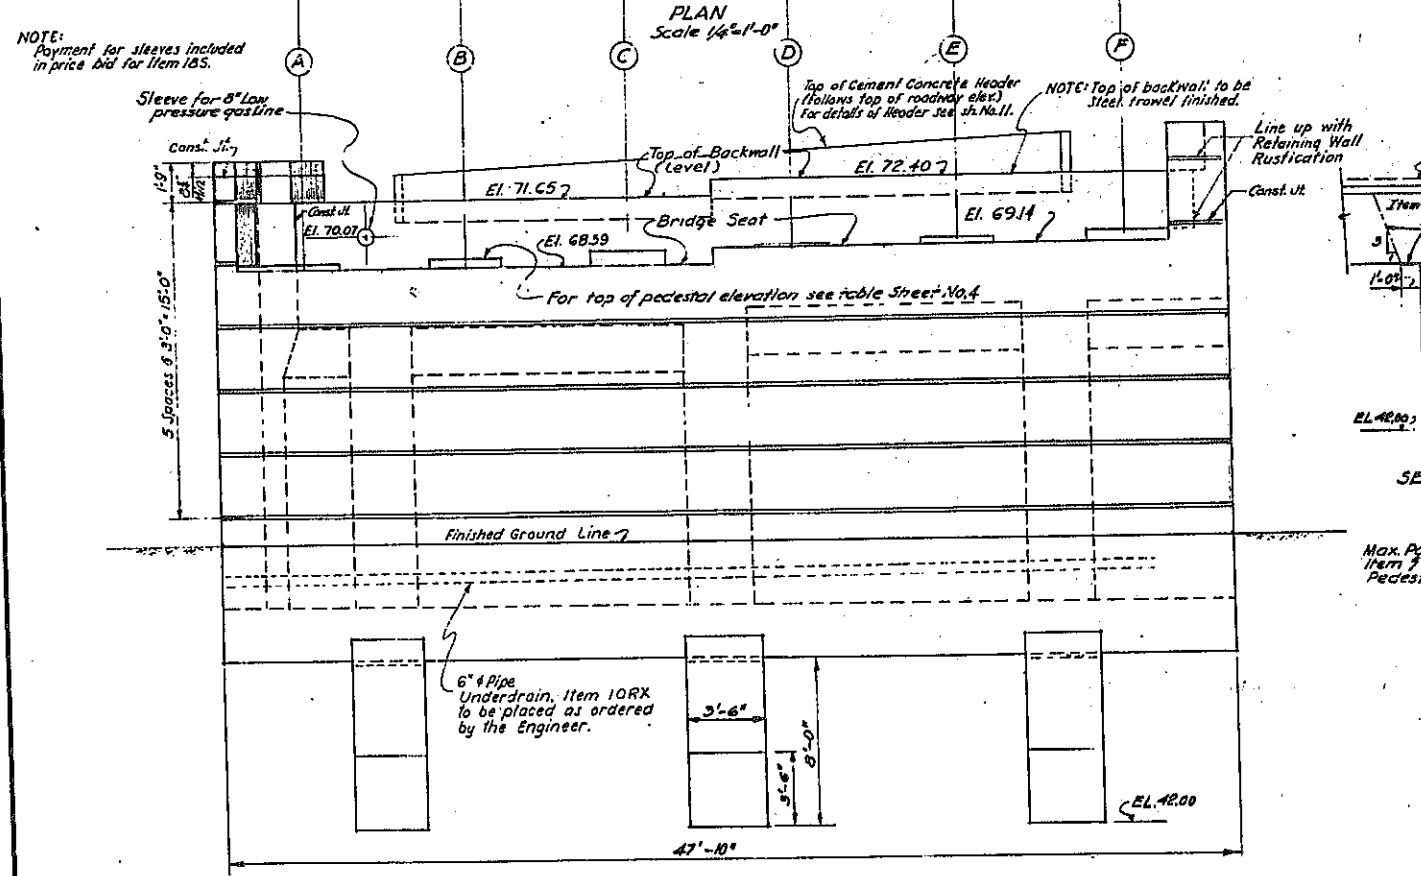 PLAN
Scale 1/4"=1'-0"
NOTE:
Payment for sleeves included
in price bid for Item 18S.
A
B
C
D
E
F
Sleeve for 8" Low
pressure gasline
Top of Cement Concrete Header
(follows top of roadway elev.)
For details of Header see sh. No. 11.
NOTE: Top of backwall to be
steel trowel finished.
Line up with
Retaining Wall
Rustication
Const. Jt.
Const. Jt.
1'-9"
Top of Backwall
(Level)
El. 71.65
El. 72.40
Const. Jt.
El. 70.07
Bridge Seat
El. 69.14
El. 68.59
For top of pedestal elevation see table Sheet No. 4
Item
3
1'-0"
5 Spaces @ 3'-0" = 15'-0"
EL 42.00
SE
Finished Ground Line
Max. Po
Item
Pedest
6" ϕ Pipe
Underdrain, Item 10RX
to be placed as ordered
by the Engineer.
3'-6"
8'-0"
3'-6"
EL. 42.00
47'-10"